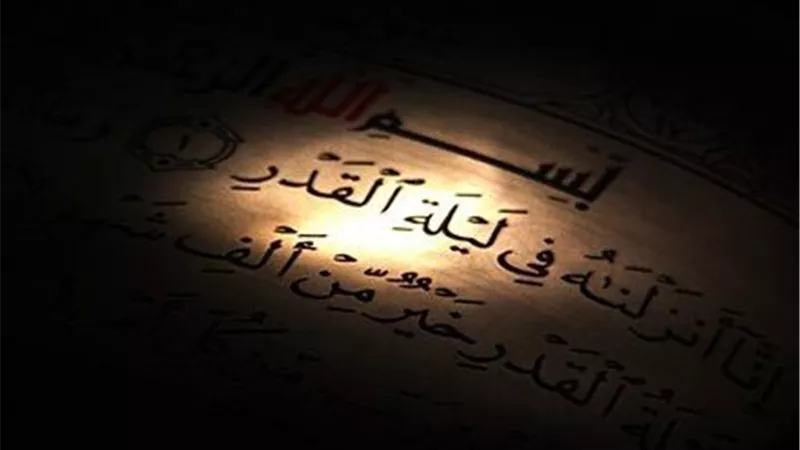 بِسْمِ اللَّهِ الرَّحْمَـ
إِنَّا أَنزَلْنَٰهُ فِي لَيْلَةِ ٱلْقَدْرِ ١
لَيْلَةُ ٱلْقَدْرِ خَيْرٌ مِّنْ أَلْفِ شَهْرٍ